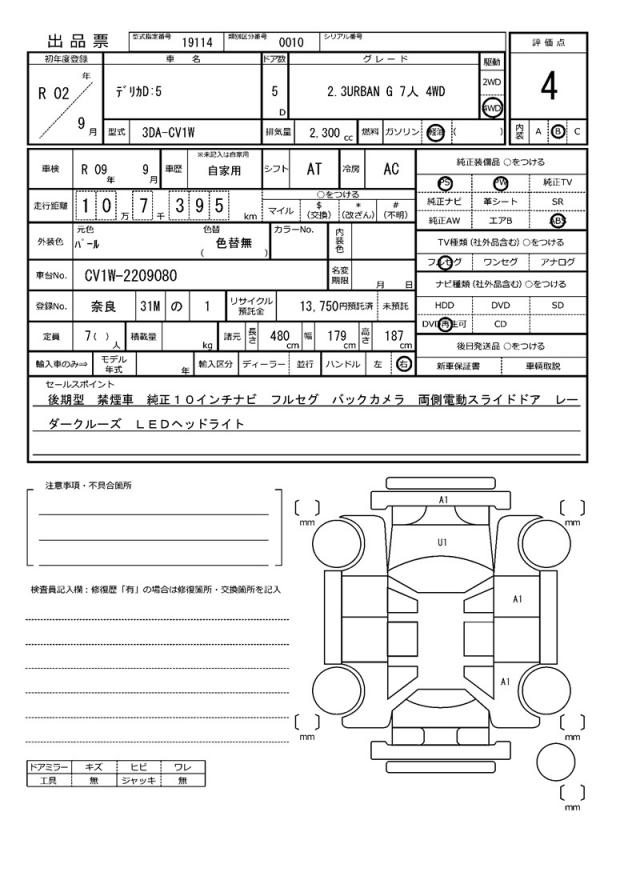 出品票 型式指定番号 19114 類別区分番号 0010 シリアル番号
評価点
4
内装 A B C
初年度登録 車名 ドア数 グレード 駆動
R 02 年 9 月 デリカD:5 5 D 2.3URBAN G 7人 4WD 2WD 4WD
型式 3DA-CV1W 排気量 2,300 cc 燃料 ガソリン 軽油 ( )
車検 R 09 年 9 月 車歴 ※未記入は自家用 自家用 シフト AT 冷房 AC
走行距離 10万7千395 km ○をつける
マイル $(交換) *(改ざん) #(不明)
外装色 元色 パール 色替 ( 色替無 ) カラーNo. 内装色
車台No. CV1W-2209080 名変期限 月 日
登録No. 奈良 31M の 1 リサイクル預託金 13,750円預託済 未預託
定員 7( )人 積載量 kg 諸元 長さ 480 cm 幅 179 cm 高さ 187 cm
輸入車のみ⇒ モデル年式 年 輸入区分 ディーラー 並行 ハンドル 左 右
純正装備品 ○をつける
PS PW 純正TV
純正ナビ 革シート SR
純正AW エアB ABS
TV種類 (社外品含む) ○をつける
フルセグ ワンセグ アナログ
ナビ種類 (社外品含む) ○をつける
HDD DVD SD
DVD再生可 CD
後日発送品 ○をつける
新車保証書 車輌取説
セールスポイント
後期型 禁煙車 純正10インチナビ フルセグ バックカメラ 両側電動スライドドア レー
ダークルーズ LEDヘッドライト
注意事項・不具合箇所
検査員記入欄:修復歴「有」の場合は修復箇所・交換箇所を記入
ドアミラー キズ ヒビ ワレ
工具 無 ジャッキ 無
A1
mm
mm
U1
A1
A1
mm
mm
mm